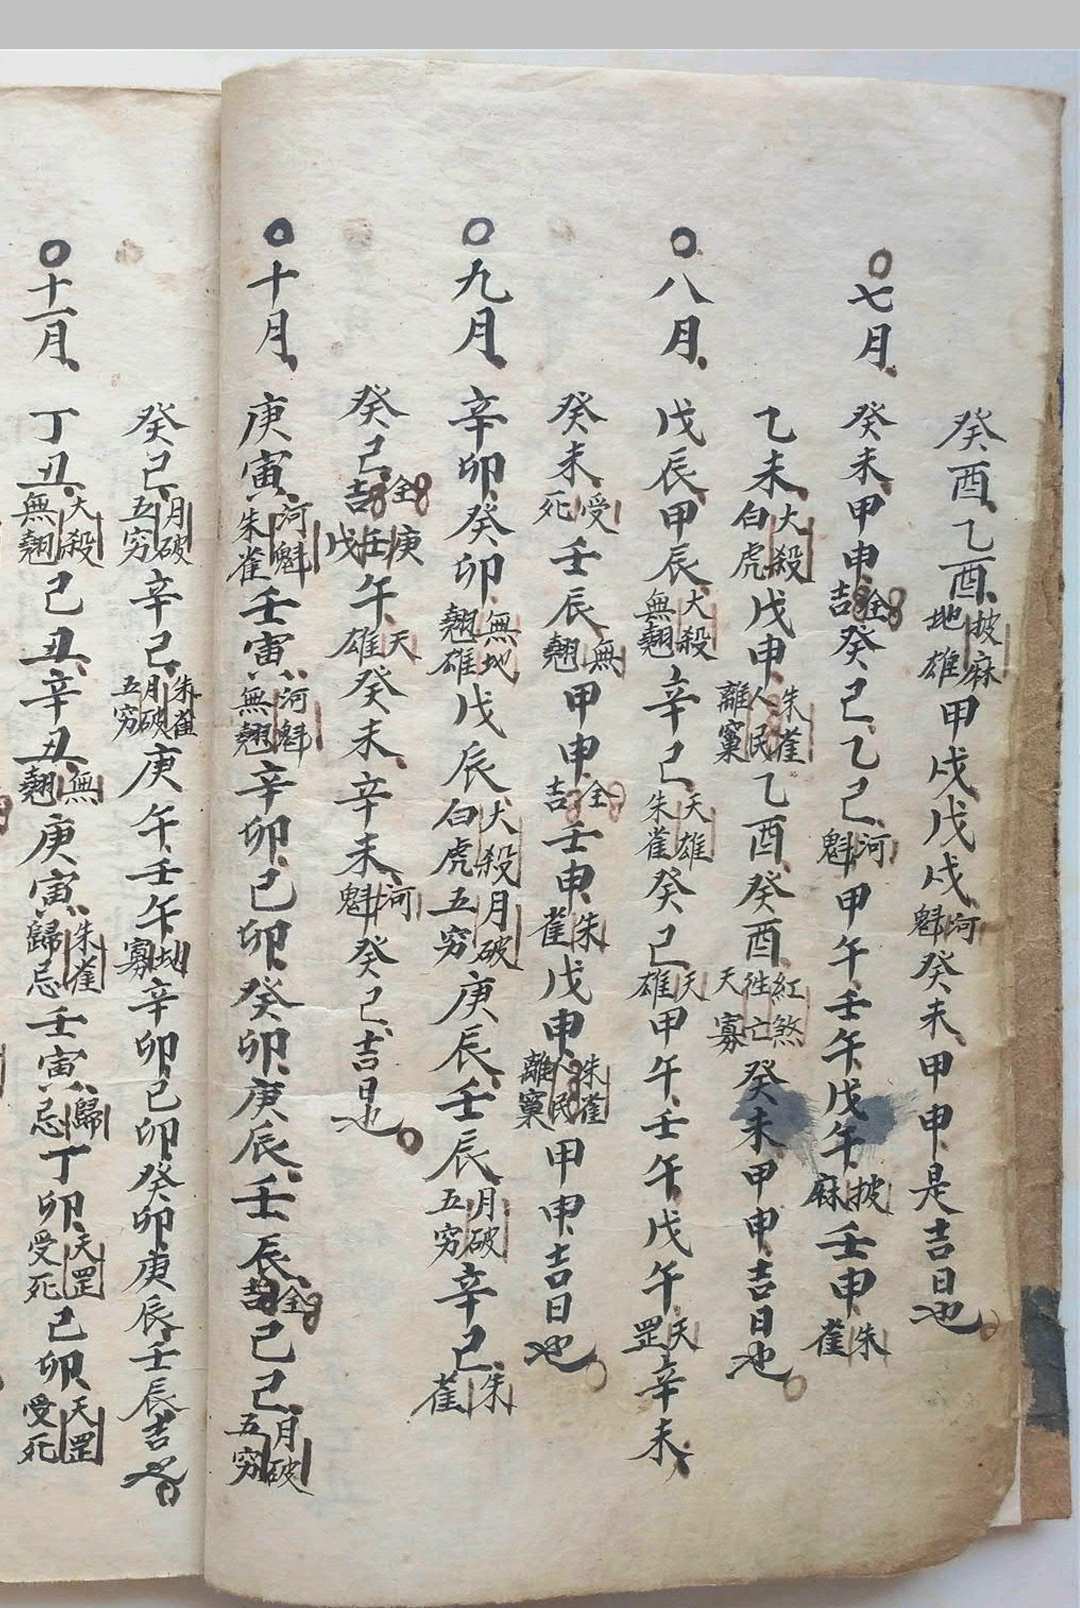 癸酉乙酉披麻地雄甲戌戊戌河魁癸未甲申是吉日也
○七月癸未甲申全吉癸巳乙巳河魁甲午壬午戊午披麻壬申朱雀
乙未大殺白虎戊申朱雀人民離窠乙酉癸酉紅煞往亡天寡癸未甲申吉日也
○八月戊辰甲辰大殺無翹辛巳天雄朱雀癸巳天雄甲午壬午戊午天罡辛未
癸未受死壬辰無翹甲申全吉壬申朱雀戊申朱雀人民離窠甲申吉日也
○九月辛卯癸卯無翹地雄戊辰大殺白虎月破五窮庚辰壬辰月破五窮辛巳朱雀
癸巳全吉庚壬戊午天雄癸未辛未河魁癸巳吉日也
○十月庚寅河魁朱雀壬寅河魁無翹辛卯己卯癸卯庚辰壬辰全吉己巳月破五窮
癸巳月破五窮辛巳朱雀月破五窮庚午壬午地寡辛卯己卯癸卯庚辰壬辰吉也
○十一月丁丑大殺無翹己丑辛丑無翹庚寅朱雀歸忌壬寅歸忌丁卯天罡受死己卯天罡受死